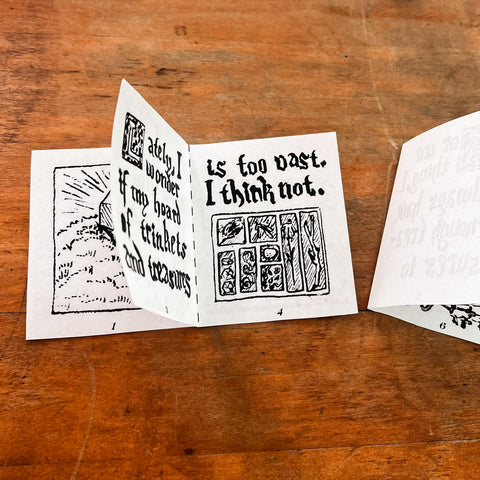 Lately, I
wonder
If my hoard
of trinkets
and treasures
is too vast.
I think not.
1
3
4
6